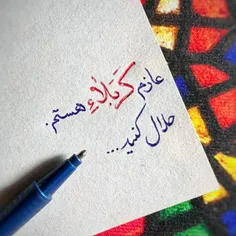 عازم کَربَلاٰءِ هستم.
حلال کنید...